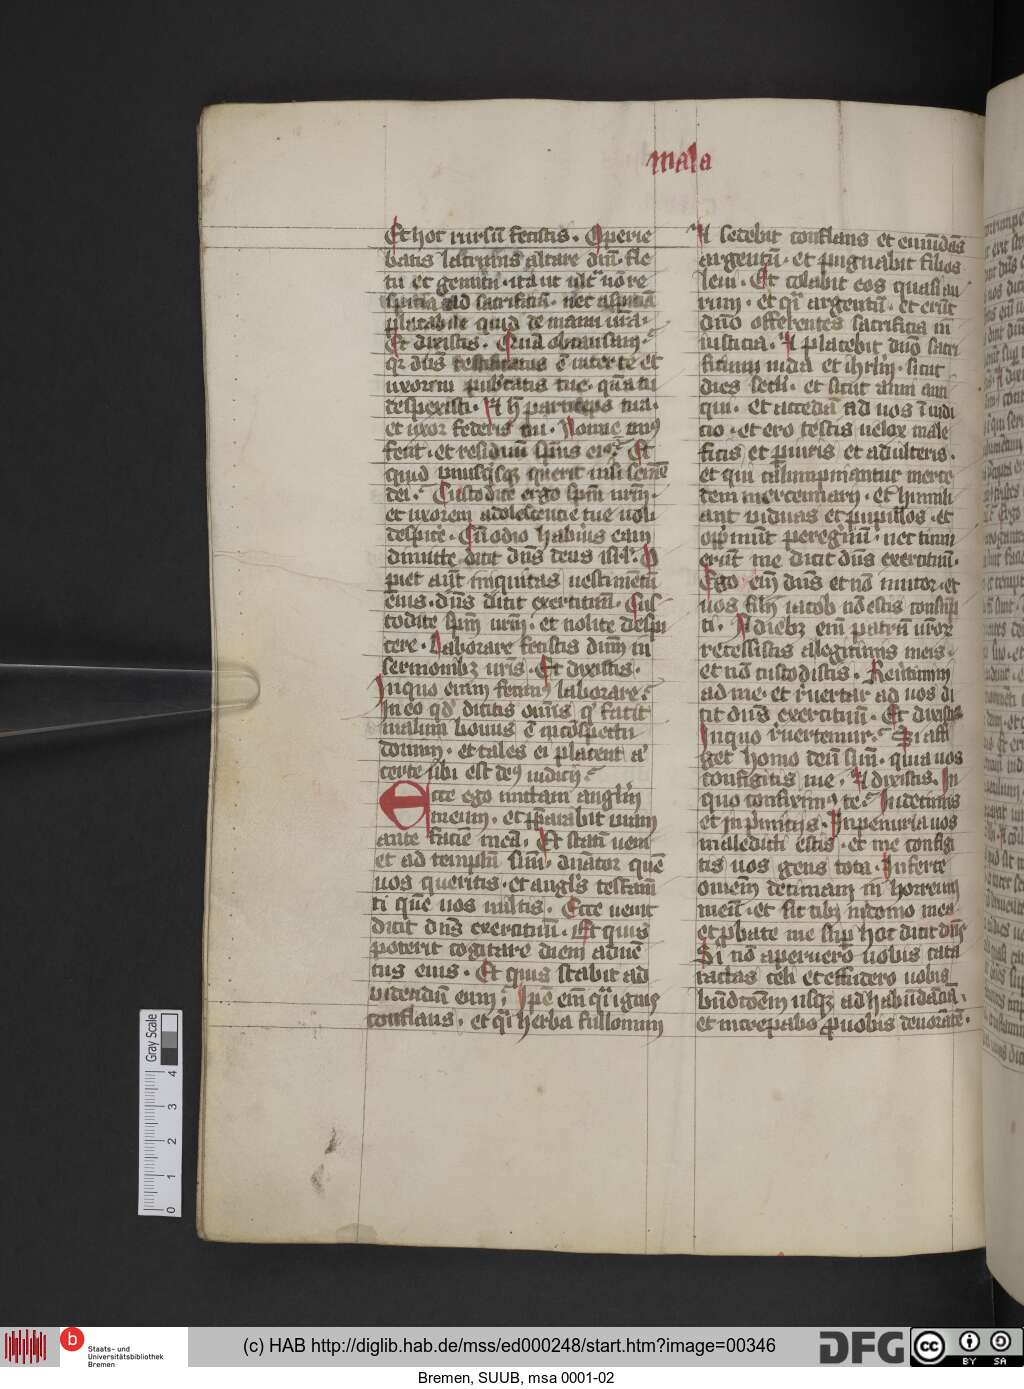 mala
Et hoc rursū fecistis. Operie
batis lacrimis altare dn̄i. fle
tu et gemitu. ita ut ult̄ nō re
spiciā ad sacrificiū. nec accipiā
placabile quid de manu vr̄a.
Et dixistis. Quā ob causam.
qr dn̄s testificatus ē inter te et
uxorem pub̄tatis tue. quā tu
despexisti. Et h̄ particeps tua.
et uxor federis tui. Nonne un9
fecit. et residuū sp̄us ei9. Et
quid unusq̄sq̄ querit nisi semē
dei. Custodite ergo sp̄m vr̄m.
et uxorem adolescentie tue noli
despice. Cū odio habūis eam
dimitte dicit dn̄s deus isrl. O
piet aūt iniquitas uestimētū
eius. dn̄s dicit exercituū. Cus
todite sp̄m vr̄m. et nolite despi
cere. Laborare fecistis dn̄m in
sermonibz vr̄is. Et dixistis.
In quo eum fecim9 laborare.
In eo qd̄ dicitis om̄is q̄ facit
malum bonus ē in cōspectu
domini. et tales ei placent. a
certe ubi est de9 iudicij.
Ecce ego mittam anglm̄
meum. et p̄parabit viam
ante faciē meā. Et statī veni
et ad templū suū. dn̄ator quē
uos queritis. et angls̄ testam̄
ti quē uos uultis. Ecce uenit
dicit dn̄s exercituū. Et quis
poterit cogitare diem aduē
tus eius. Et quis stabit ad
uidendū eum. Ip̄e em̄ q̄i ignis
conflans. et q̄i herba fullonum
Et sedebit conflans et emūdās
argentū. et purgabit filios
leui. Et colabit eos quasi au
rum. et q̄i argentū. et erūt
dn̄o offerentes sacrificia in
iusticia. Et placebit dn̄o sacri
ficium iuda et ihrlm̄. sicut
dies sc̄li. et sicut anni anti
qui. Et accedā ad uos ī iudi
cio. et ero testis uelox male
ficis et periuris et adulteris.
et qui calumpniantur merce
dem mercennarij. et humili
ant uiduas et pupillos. et
opp̄munt peregrinū. nec timu
erūt me dicit dn̄s exercituū.
Ego em̄ dn̄s et nō mutor. et
uos filij iacob nō estis consūp
ti. A diebz em̄ patrū vr̄orz
recessistis a legitimis meis.
et nō custodistis. Reuertimini
ad me. et r̄uertar ad uos di
cit dn̄s exercituū. Et dixistis
In quo r̄uertemur. Si affi
get homo deū suū. quia uos
configitis me. Et dixistis. In
quo confixim9 te. In decimis
et in p̄mitijs. In penuria uos
maledicti estis. et me configi
tis uos gens tota. Inferte
omnē decimam in horreum
meū. et sit cib9 in domo mea
et p̄bate me sup̄ hoc dicit dn̄s
Si nō aperuero uobis cata
ractas celi et effudero uobis
bn̄dc̄oem usq̄z ad habūdāciā.
et increpabo p̄ uobis deuorātē.
Gray Scale
4
3
2
1
0
b
Staats- und
Universitätsbibliothek
Bremen
(c) HAB http://diglib.hab.de/mss/ed000248/start.htm?image=00346
DFG
cc
BY SA
Bremen, SUUB, msa 0001-02